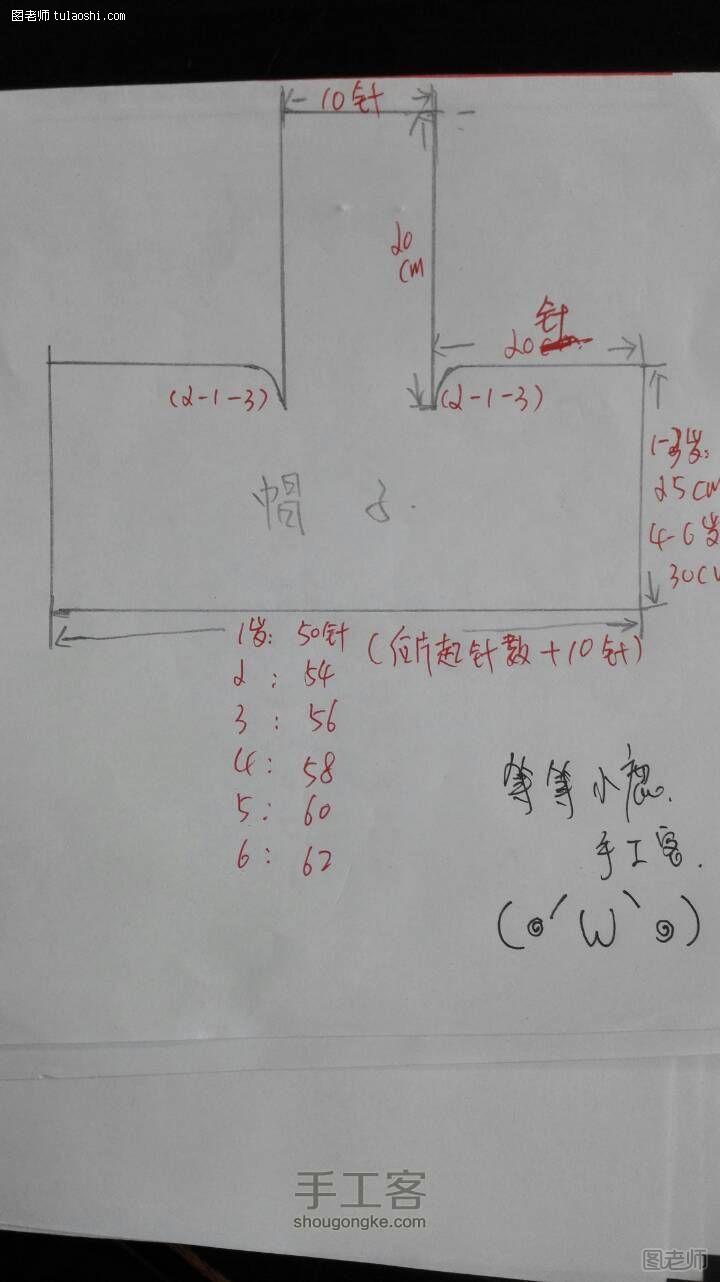 图老师 tulaoshi.com
10针
20
cm
针
20
(2-1-3)
(2-1-3)
1-3岁:
25cm
帽 子.
4-6岁
30cm
1岁: 50针 (后片起针数+10针)
2: 54
3: 56
4: 58
5: 60
6: 62
等等小
手工客.
(๑′ω`๑)
手工客
shougongke.com
图老师